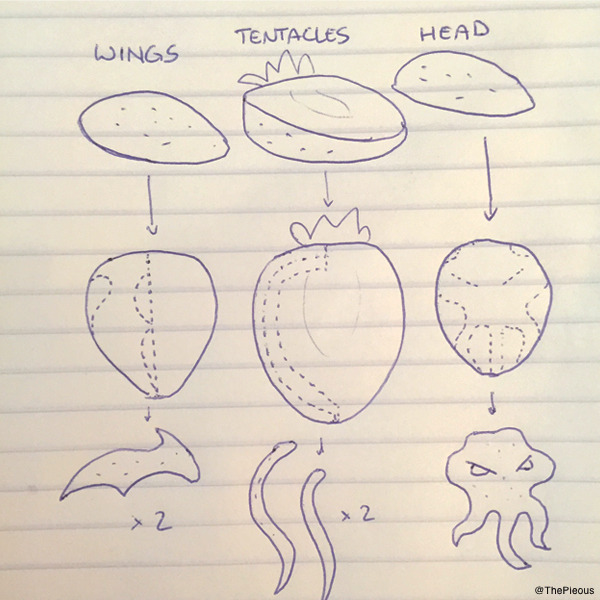 WINGS
TENTACLES
HEAD
x 2
x 2
@ThePieous